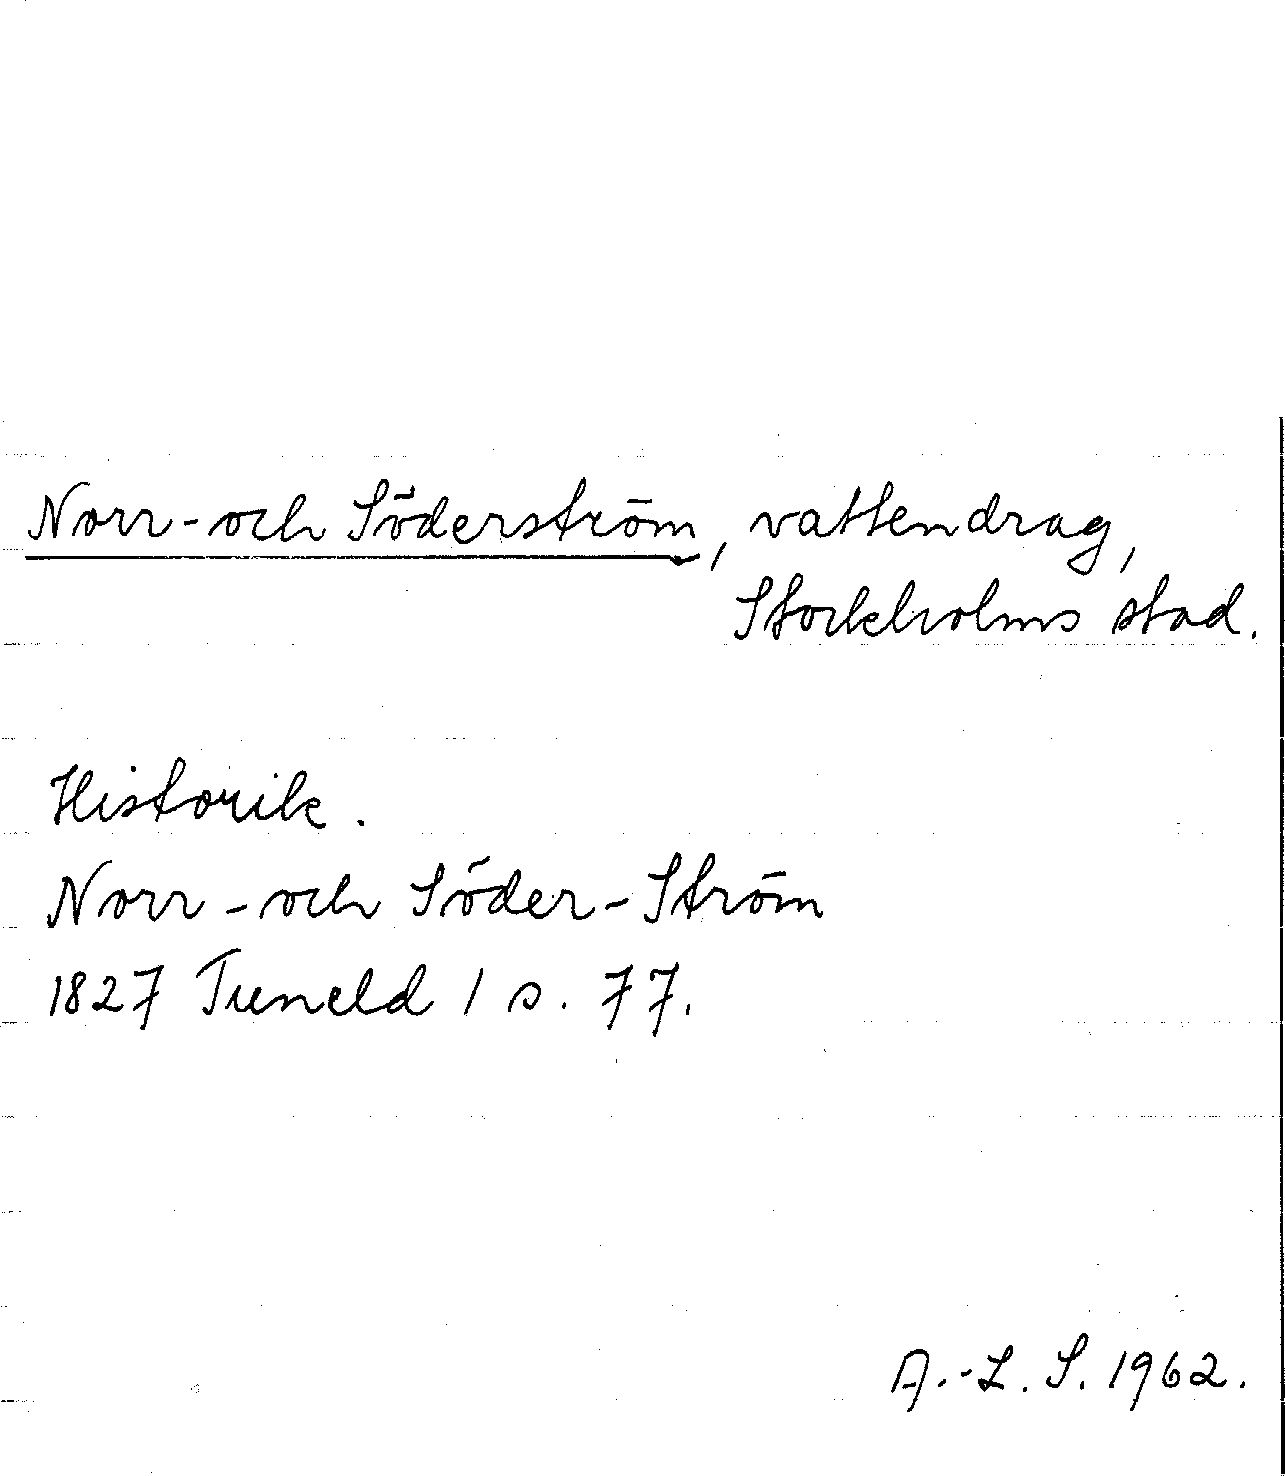 Norr- och Söderström, vattendrag,
Stockholms stad.
Historik.
Norr- och Söder-Ström
1827 Tuneld 1 s. 77.
A.-L. S. 1962.